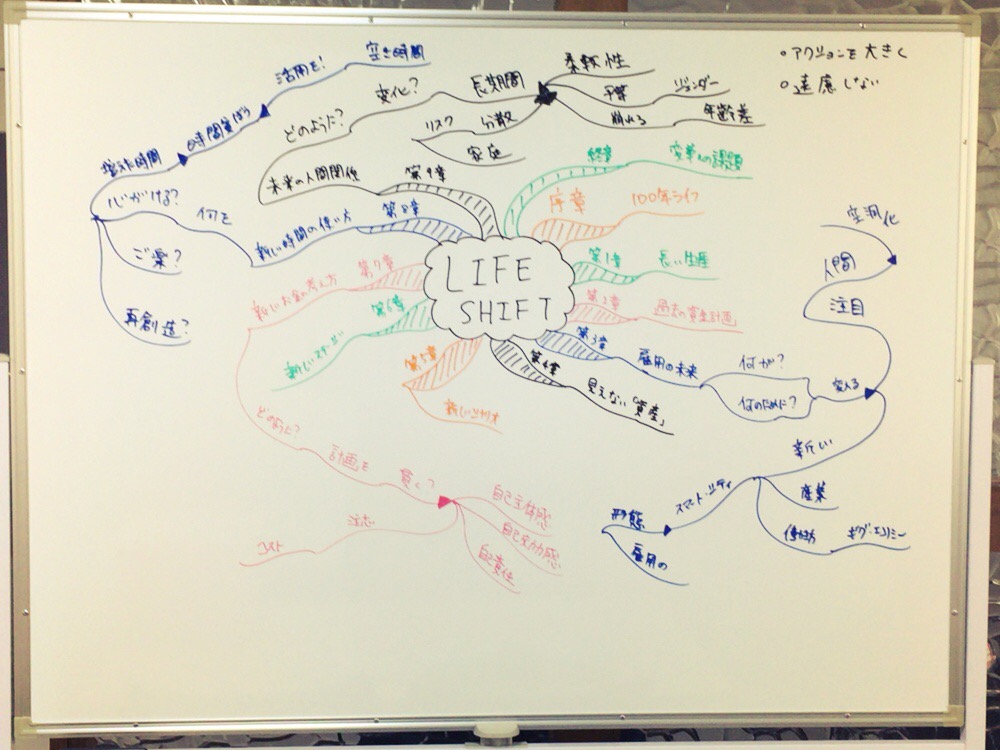 LIFE SHIFT
○アクションを大きく
○遠慮しない
終章
変革への課題
序章
100年ライフ
第1章
長い生涯
第2章
過去の資金計画
第3章
雇用の未来
何が?
何のために?
変える
注目
人間
空洞化
新しい
産業
働き方
ギグ・エコノミー
スマート・シティ
形態
雇用の
第4章
見えない「資産」
第5章
新しいシナリオ
第6章
新しいステージ
第7章
新しいお金の考え方
どのように?
計画を
貫く?
自己主体感
自己効力感
自己責任
第8章
新しい時間の使い方
何を
心がける?
増えた時間
活用を!
空き時間
ご楽?
再創造?
第9章
未来の人間関係
どのように?
変化?
長期間
柔軟性
平等
ジェンダー
崩れる
年齢差
リスク
分散
家庭